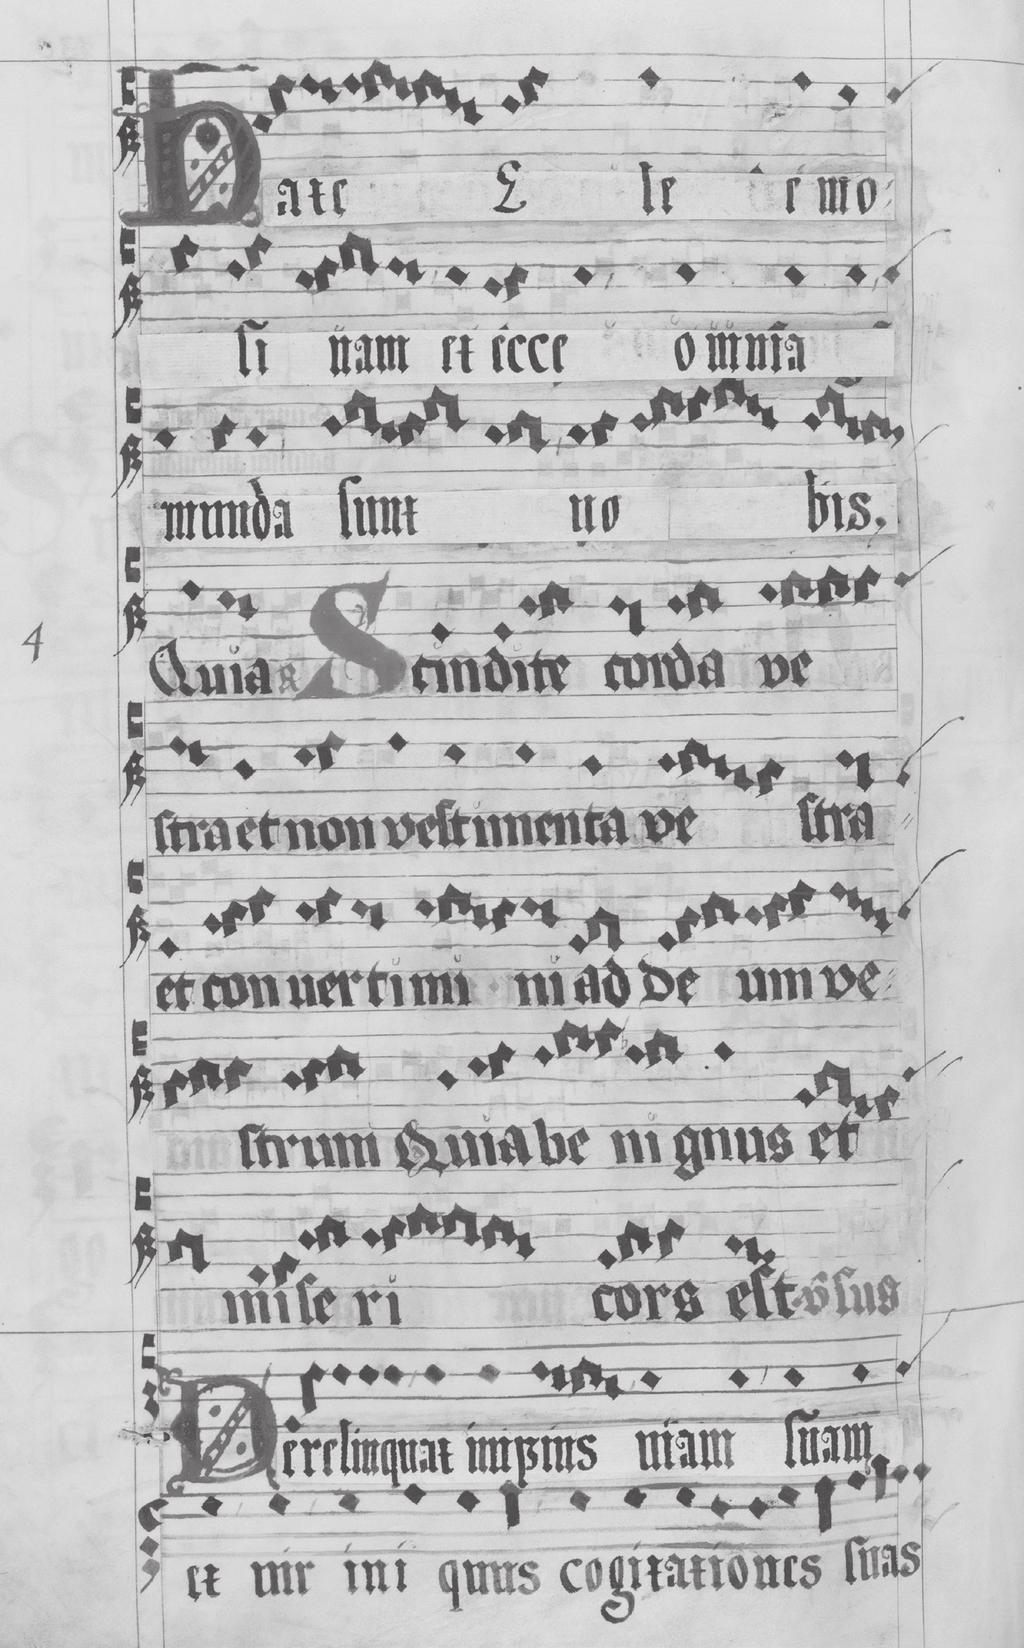 Date Ele emo
si nam et ecce omnia
munda sunt uo bis.
Quia Scindite corda ve
stra et non vestimenta ve stra
et con uer timi ni ad De um ve
4
strum Quia be ni gnus et
mi se ri cors est v̄sus
Derelinquat impius uiam suam
et uir ini quus cogitationes suas